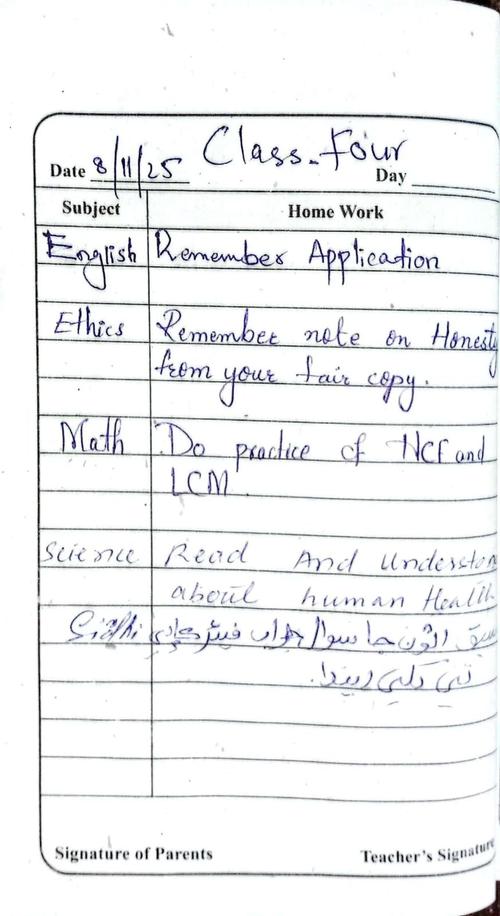 Class-Four
Date 8/11/25 Day
Subject Home Work
English Remember Application
Ethics Remember note on Honesty
from your fair copy.
Math Do practice of HCF and
LCM.
Science Read And Understan
about human Health
Sidhi سبق اٺون جا سوال جواب فيئر ڪاپي
تي لکي ايندا.
Signature of Parents Teacher's Signature